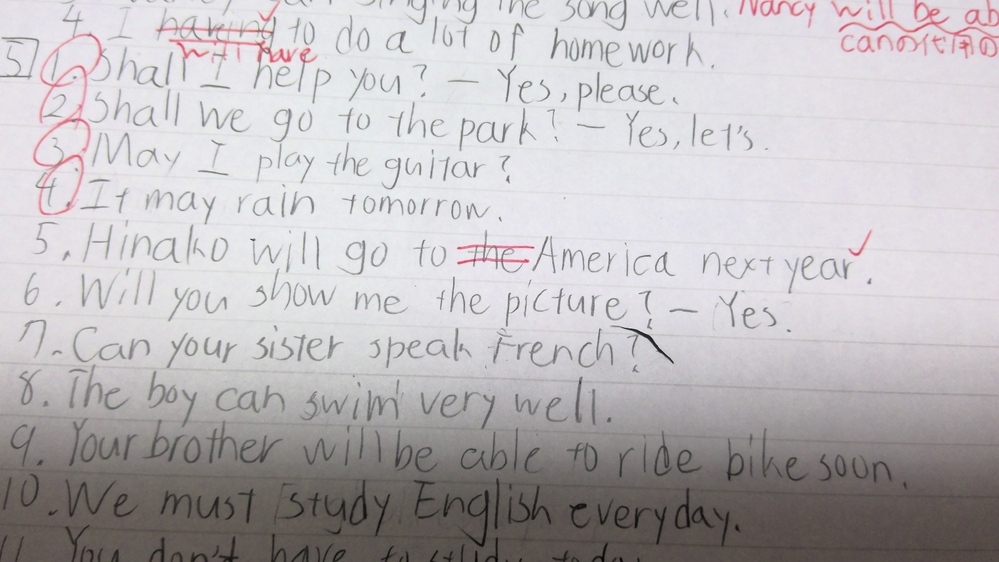 singing the song well. Nancy will be ab
4. I having to do a lot of homework.
will have
5 1. Shall I help you? — Yes, please.
2. Shall we go to the park? — Yes, let's.
3. May I play the guitar?
4. It may rain tomorrow.
5. Hinako will go to the America next year.
6. Will you show me the picture? — Yes.
7. Can your sister speak French?
8. The boy can swim very well.
9. Your brother will be able to ride bike soon.
10. We must study English everyday.
11. You don't have to study today